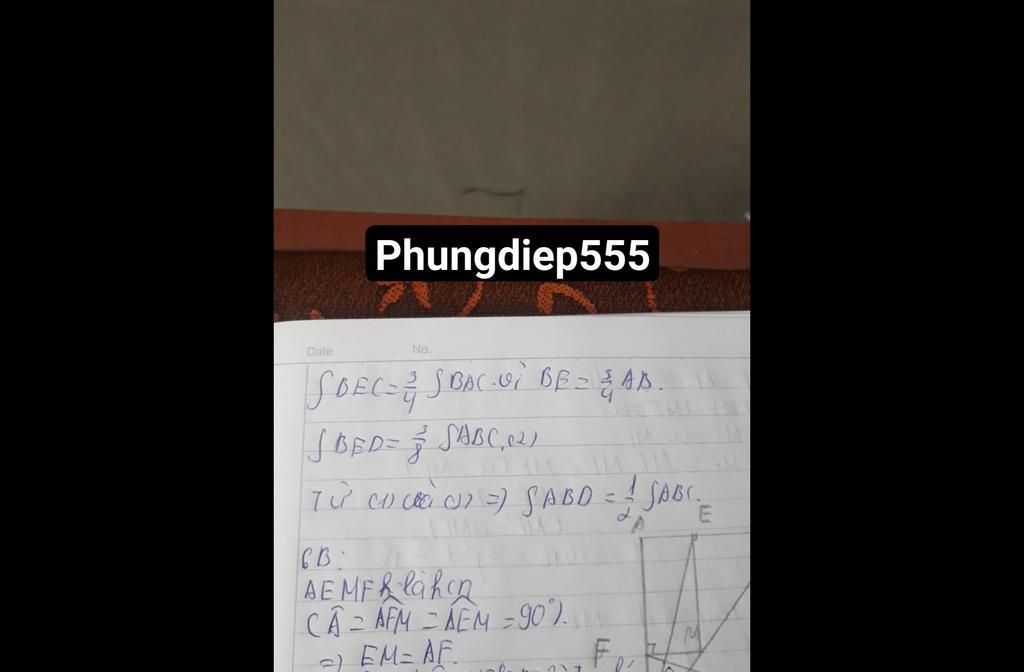 Phungdiep555
Date No.
SBEC = 3/4 SBAC. vì BE = 3/4 AB.
SBED = 3/8 SABC. (2)
Từ (1) và (2) => SABD = 1/2 SABC.
A E
6B:
AEMF là hcn
(Â = AFM = AEM = 90°).
M
=> EM = AF.
F